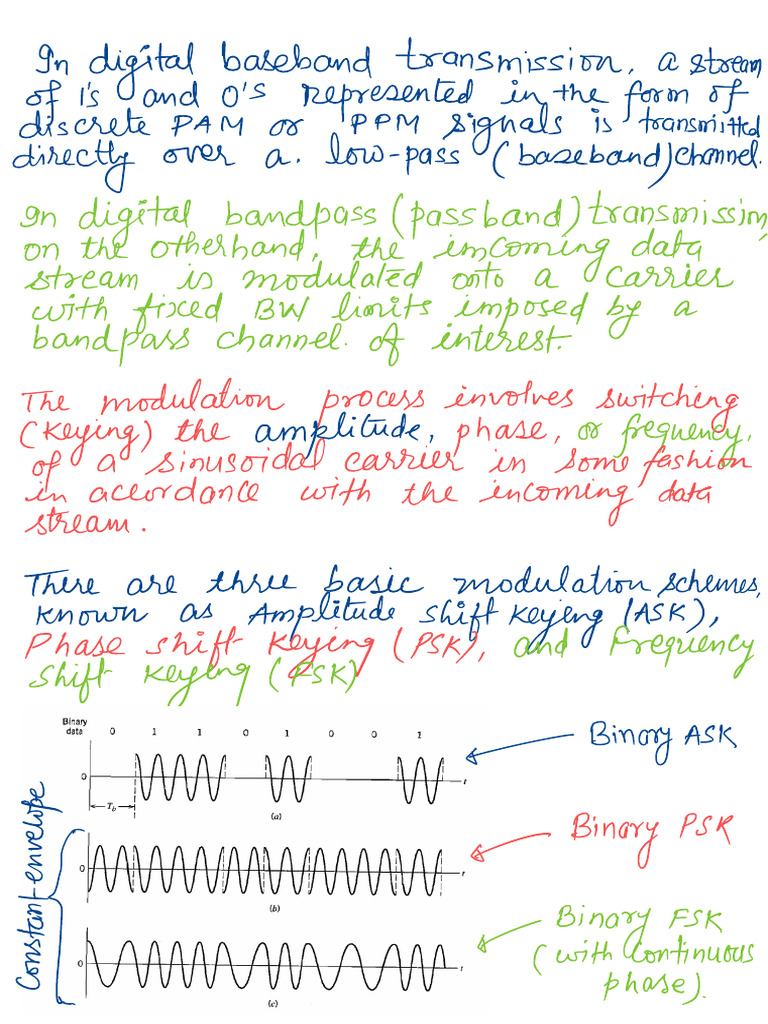 In digital baseband transmission, a stream
of 1's and 0's represented in the form of
discrete PAM or PPM signals is transmitted
directly over a. low-pass (baseband) channel.
In digital bandpass (passband) transmission,
on the otherhand, the imcoming data
stream is modulated onto a carrier
with fixed BW limits imposed by a
bandpass channel. of interest.
The modulation process involves switching
(Keying) the amplitude, phase, or frequency,
of a sinusoidal carrier in some fashion
in accordance with the incoming data
stream.
There are three basic modulation schemes,
known as Amplitude shift Keyeng (ASK),
Phase shift Keyeng (PSK), and Frequency
shift Keyeng (FSK)
Binary
data 0 1 1 0 1 0 0 1
Binary ASK
0 t
Tb
(a)
Constant envelope
Binary PSK
0 t
(b)
Binary FSK
(with Continuous
phase).
0 t
(c)